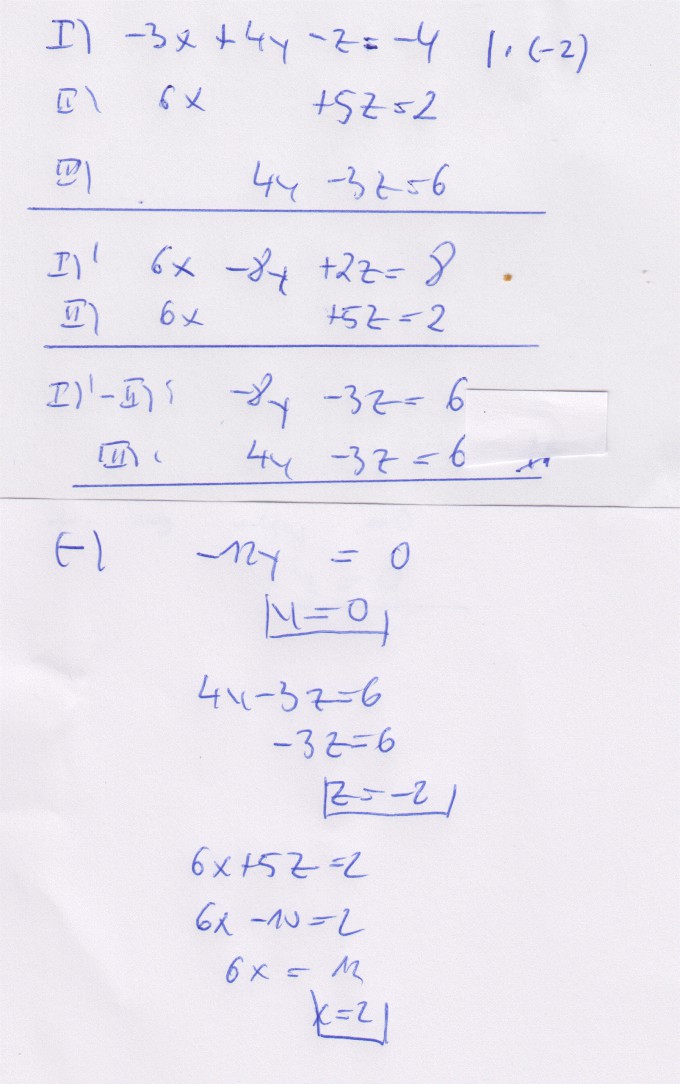 I) -3x + 4y - z = -4 | · (-2)
II) 6x +5z = 2
III) 4y -3z = 6
I)' 6x -8y +2z = 8
II) 6x +5z = 2
I)' - II): -8y -3z = 6
III): 4y -3z = 6
(-) -12y = 0
y = 0
4y - 3z = 6
-3z = 6
z = -2
6x + 5z = 2
6x - 10 = 2
6x = 12
x = 2